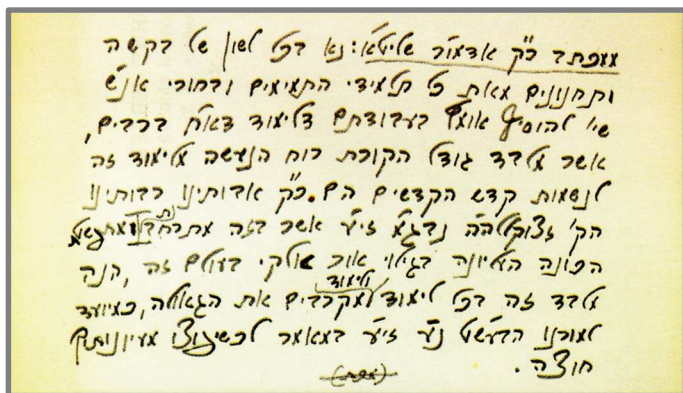 ממכתב כ"ק אדמו"ר שליט"א: נא בכל לשון של בקשה
ותחנונים מאת כל תלמידי התמימים ובחורי אנ"ש
שי' להוסיף אומץ בעבודתם דלימוד דא"ח ברבים,
אשר מלבד גודל הקורת רוח הנעשה מלימוד זה
לנשמות קדש הקדשים הם כ"ק אבותינו רבותינו
הק' זצוקללה"ה נבג"מ זי"ע אשר בזה
הכוונה העליונה בגילוי אור אלקי בעולם זה, הנה
מלבד זה בכל לימוד ולימוד מקרבים את הגאולה, כמיועד
למורנו הבעש"ט נ"ע זי"ע במאמר לכשיפוצו מעיינותיך
חוצה.